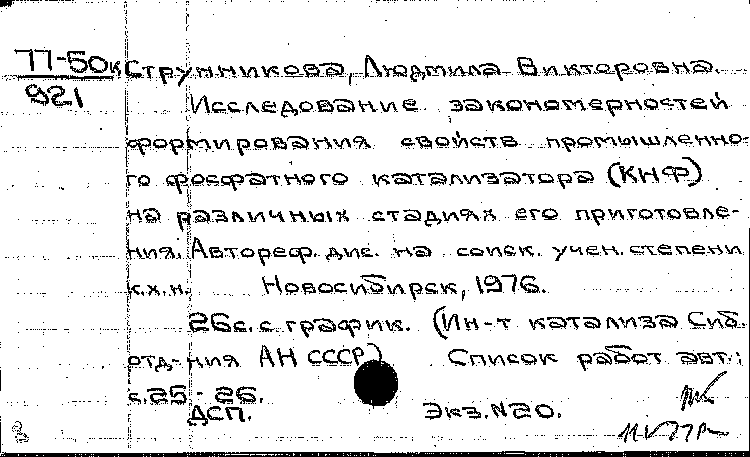 77-50к
921
Струнникова, Людмила Викторовна.
Исследование закономерностей
формирования свойств промышленно-
го фосфатного катализатора (КНФ)
на различных стадиях его приготовле-
ния. Автореф. дис. на соиск. учен. степени
к.х.н. Новосибирск, 1976.
26с. с график. (Ин-т катализа Сиб.
отд-ния АН СССР) Список работ авт.:
с.25 - 26.
ДСП. Экз.N20.